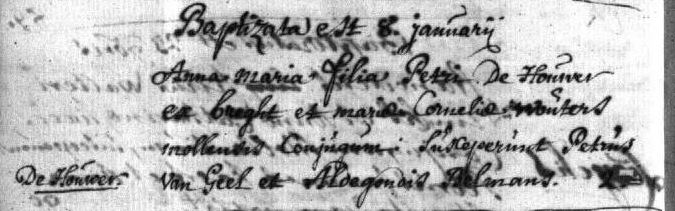 Baptizata est 8. januarij
Anna maria filia Petri De Houwer
ex breght et maria Cornelis wouters
mollensis Conjugum: Susceperunt Petrus
De Houwer. van Geel et Aldegondis Belmans.